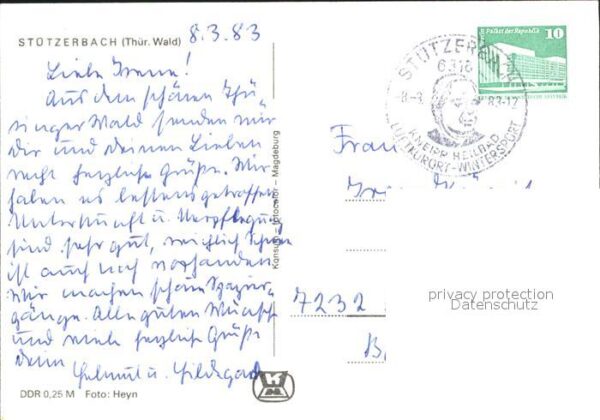 STÜTZERBACH (Thür. Wald)
8.3.83
Liebe Irene!
Aus dem schönen Thü-
ringer Wald senden wir
Dir und Deinen Lieben
recht herzliche Grüße. Wir
haben es bestens getroffen
Unterkunft u. Verpflegung
sind sehr gut, reichlich Schnee
ist auch noch vorhanden
Wir machen schöne Spazier-
gänge. Alle guten Wünsche
und viele herzliche Grüße
Deine Helmut u. Hildegard
DDR 0,25 M Foto: Heyn
Konsum - Fotocolor - Magdeburg
Palast der Republik
10
STÜTZERBACH
6316
-8.-3.83-12
KNEIPP HEILBAD
LUFTKURORT-WINTERSPORT
Frau
7232
B
privacy protection
Datenschutz